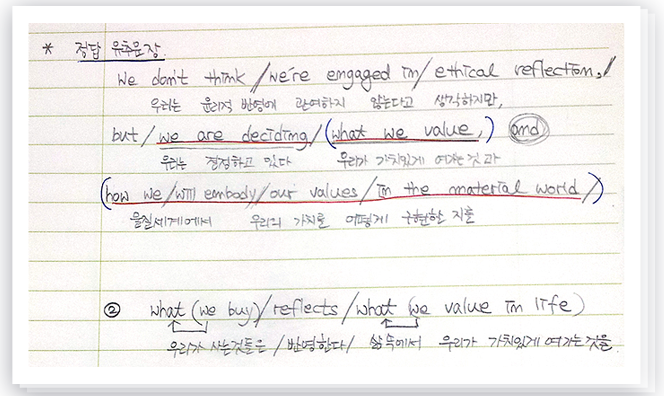 * 정답 유추문장.
We don't think / we're engaged in / ethical reflection, /
우리는 윤리적 반영에 관여하지 않는다고 생각하지만,
but / we are deciding / (what we value,) and
우리는 결정하고 있다 우리가 가치있게 여기는 것과
(how we / will embody / our values / in the material world /)
물질세계에서 우리의 가치를 어떻게 구현할 지를
② what (we buy) / reflects / what (we value in life)
우리가 사는것들은 / 반영한다 / 삶속에서 우리가 가치있게 여기는 것을.